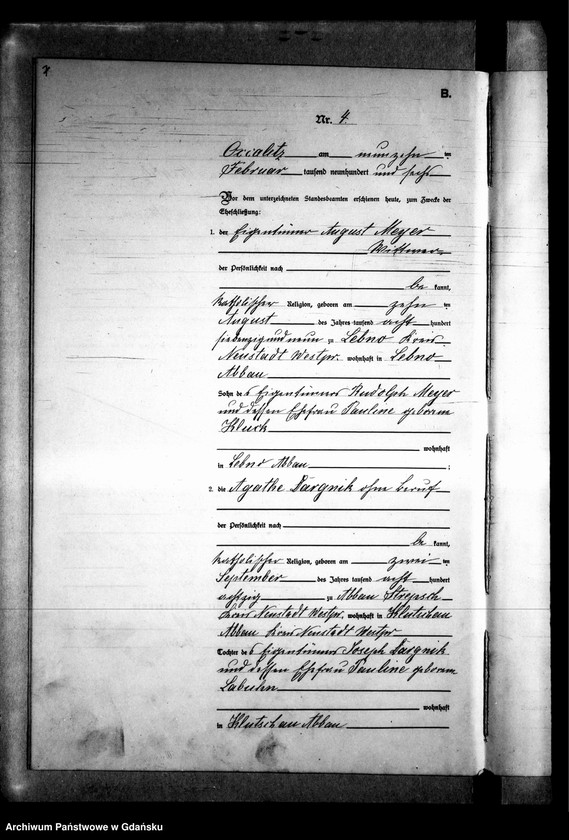 7
B.
Nr. 4.
am neunzehn ten
Februar tausend neunhundert und sechs
Vor dem unterzeichneten Standesbeamten erschienen heute, zum Zwecke der
Eheschließung:
1. der Eigentümer August Meyer
Wittwer
der Persönlichkeit nach
be kannt,
katholischer Religion, geboren am zehn ten
August des Jahres tausend acht hundert
siebenzig und neun zu Lebno Kreis
Neustadt Westpr. wohnhaft in Lebno
Abbau
Sohn des Eigentümers Rudolph Meyer
und dessen Ehefrau Pauline geborene
wohnhaft
in Lebno Abbau ;
2. die Agathe Dargnik ohne Beruf
der Persönlichkeit nach
be kannt,
katholischer Religion, geboren am zwei ten
September des Jahres tausend acht hundert
achtzig zu Abbau Strepsch
Kreis Neustadt Westpr. wohnhaft in Klutschau
Abbau Kreis Neustadt Westpr
Tochter des Eigentümers Joseph Dargnik
und dessen Ehefrau Pauline geborene
Labudda
wohnhaft
in Klutschau Abbau
Archiwum Państwowe w Gdańsku